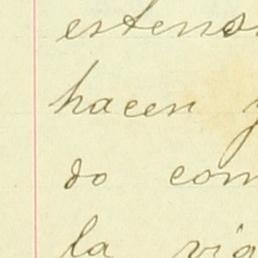 estens
hacen
do com
la vig